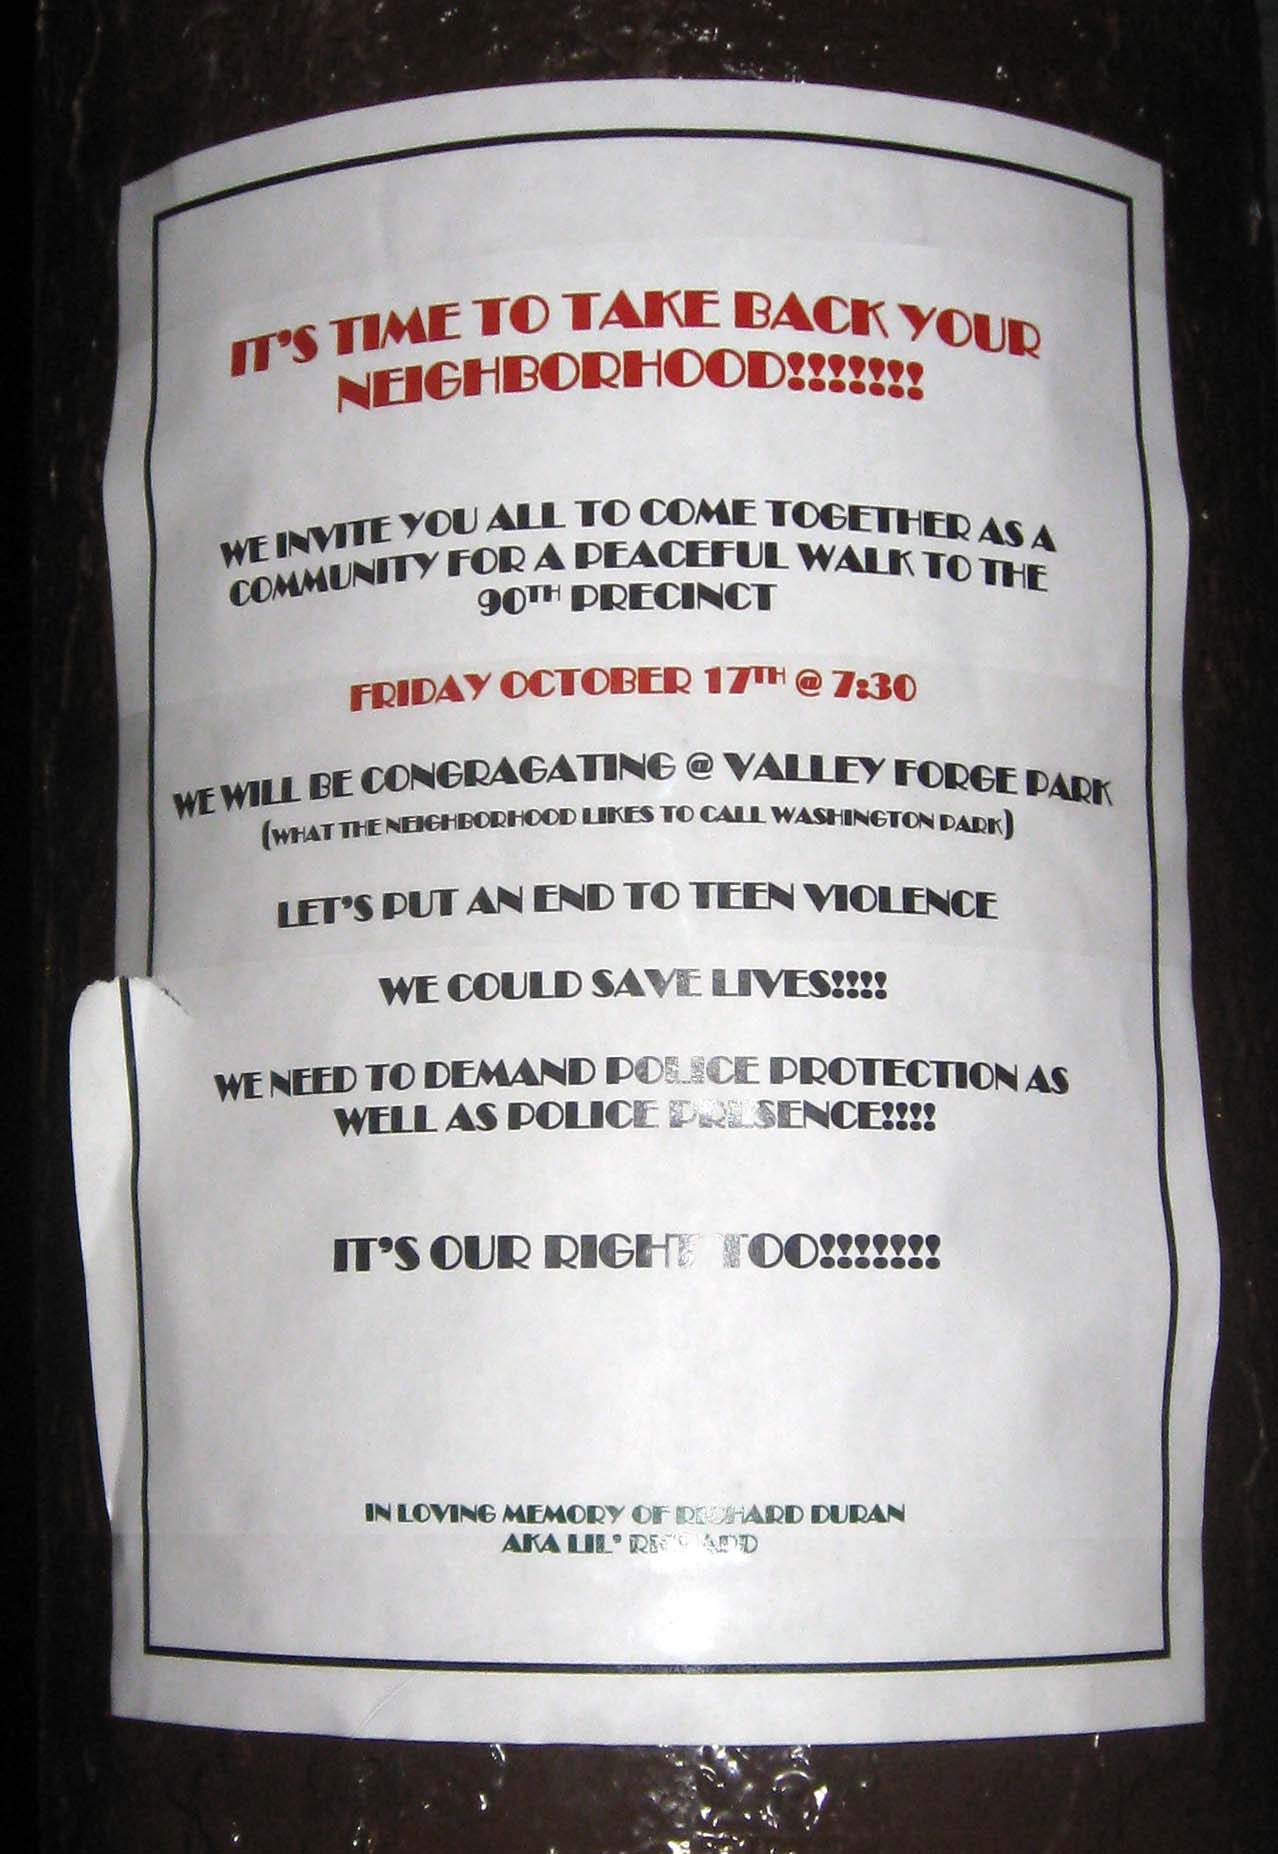 IT'S TIME TO TAKE BACK YOUR
NEIGHBORHOOD!!!!!!!
WE INVITE YOU ALL TO COME TOGETHER AS A
COMMUNITY FOR A PEACEFUL WALK TO THE
90TH PRECINCT
FRIDAY OCTOBER 17TH @ 7:30
WE WILL BE CONGRAGATING @ VALLEY FORGE PARK
(WHAT THE NEIGHBORHOOD LIKES TO CALL WASHINGTON PARK)
LET'S PUT AN END TO TEEN VIOLENCE
WE COULD SAVE LIVES!!!!
WE NEED TO DEMAND POLICE PROTECTION AS
WELL AS POLICE PRESENCE!!!!
IT'S OUR RIGHT TOO!!!!!!!
IN LOVING MEMORY OF RICHARD DURAN
AKA LIL' RICHARD